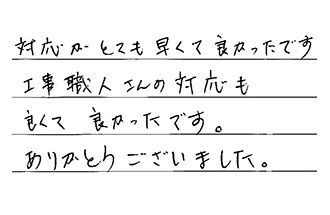 対応がとても早くて良かったです
工事職人さんの対応も
良くて良かったです。
ありがとうございました。